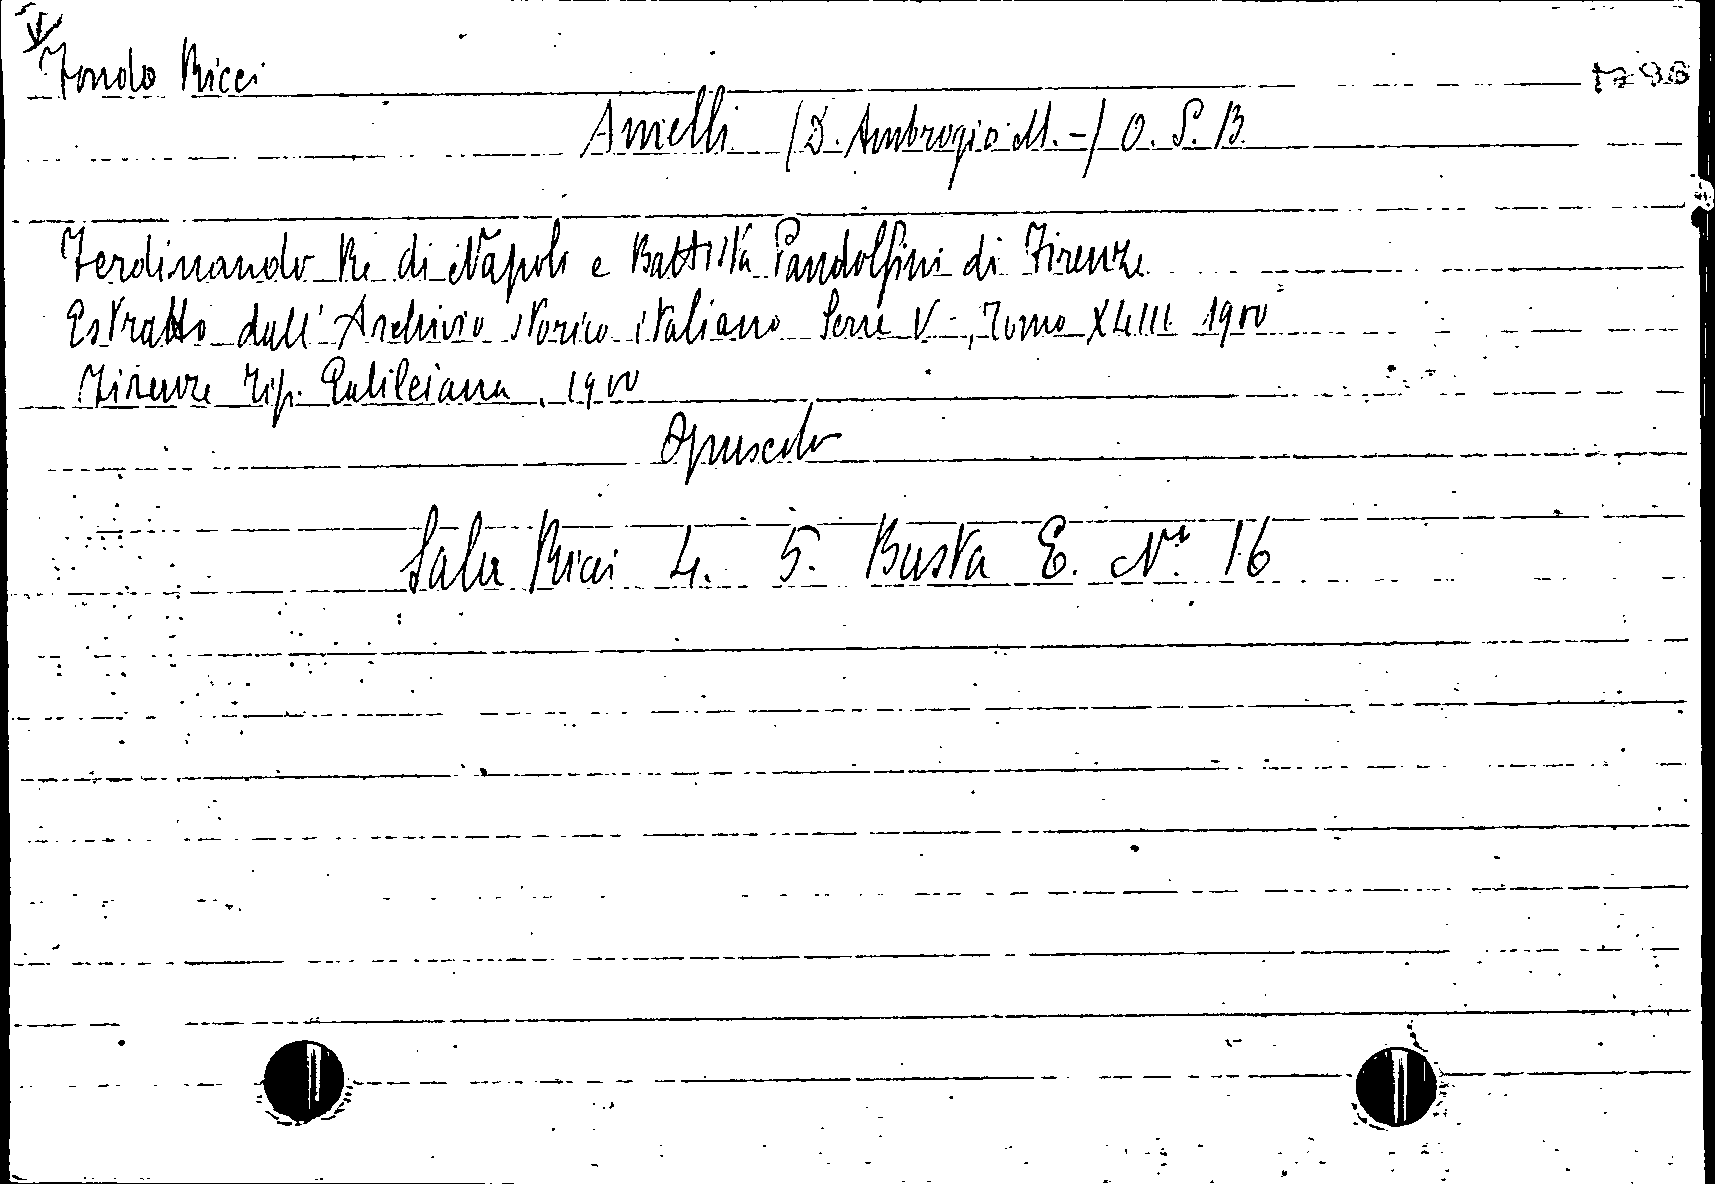 V
Fondo Ricci
1796
Amelli (D. Ambrogio M. -) O. S. B.
Ferdinando Re di Napoli e Battista Pandolfini di Firenze
Estratto dall' Archivio storico italiano Serie V-, Tomo XLIII 1900
Firenze Tip. Galileiana, 1900
Opuscolo
Sala Ricci 4. 5. Busta E. N° 16